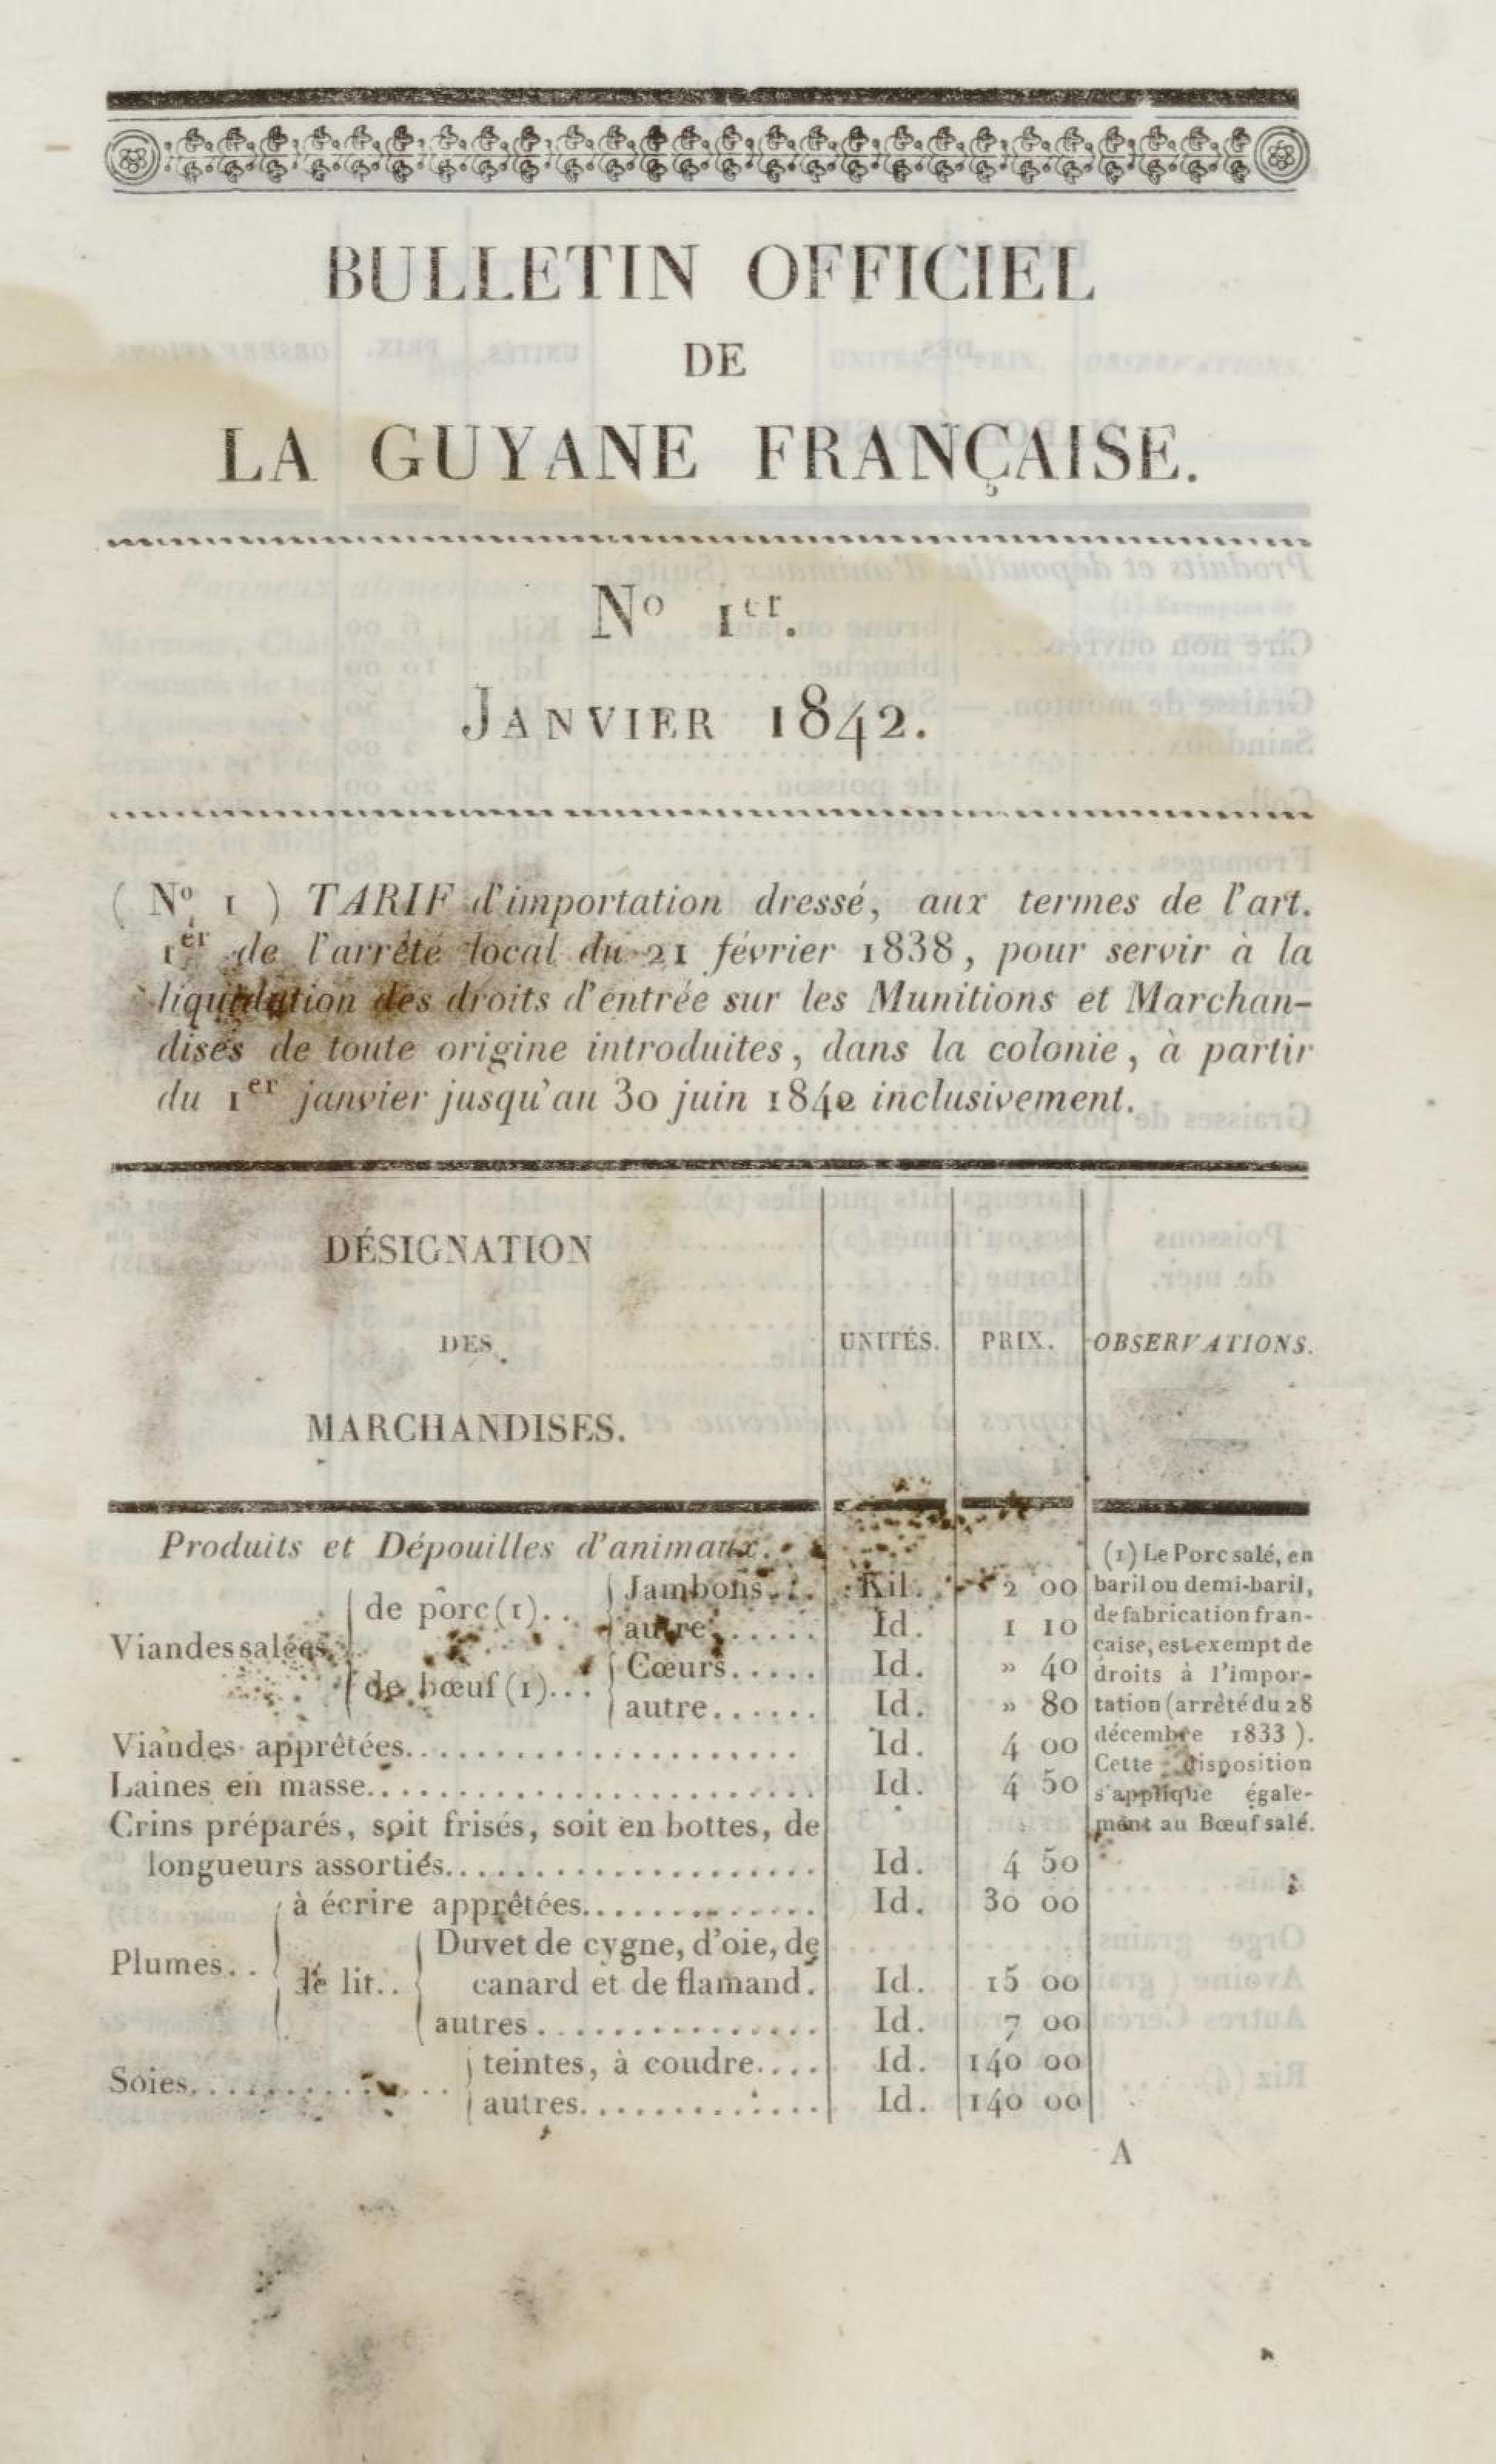 BULLETIN OFFICIEL
DE
LA GUYANE FRANÇAISE.
N° 1er.
JANVIER 1842.
( N° 1 ) TARIF d'importation dressé, aux termes de l'art.
1er de l'arrêté local du 21 février 1838, pour servir à la
liquidation des droits d'entrée sur les Munitions et Marchan-
dises de toute origine introduites, dans la colonie, à partir
du 1er janvier jusqu'au 30 juin 1842 inclusivement.
DÉSIGNATION
DES
MARCHANDISES.
UNITÉS.
PRIX.
OBSERVATIONS.
Produits et Dépouilles d'animaux.
Viandes salées
de porc (1)...
Jambons.... Kil. 2 00
autre...... Id. 1 10
de bœuf (1)...
Cœurs..... Id. » 40
autre...... Id. » 80
Viandes apprêtées..................... Id. 4 00
Laines en masse....................... Id. 4 50
Crins préparés, soit frisés, soit en bottes, de
longueurs assorties................... Id. 4 50
Plumes..
à écrire apprêtées............ Id. 30 00
de lit..
Duvet de cygne, d'oie, de
canard et de flamand. Id. 15 00
autres............... Id. 7 00
Soies.............
teintes, à coudre.... Id. 140 00
autres............. Id. 140 00
(1) Le Porc salé, en
baril ou demi-baril,
de fabrication fran-
caise, est exempt de
droits à l'impor-
tation (arrêté du 28
décembre 1833 ).
Cette disposition
s'applique égale-
ment au Bœuf salé.
A